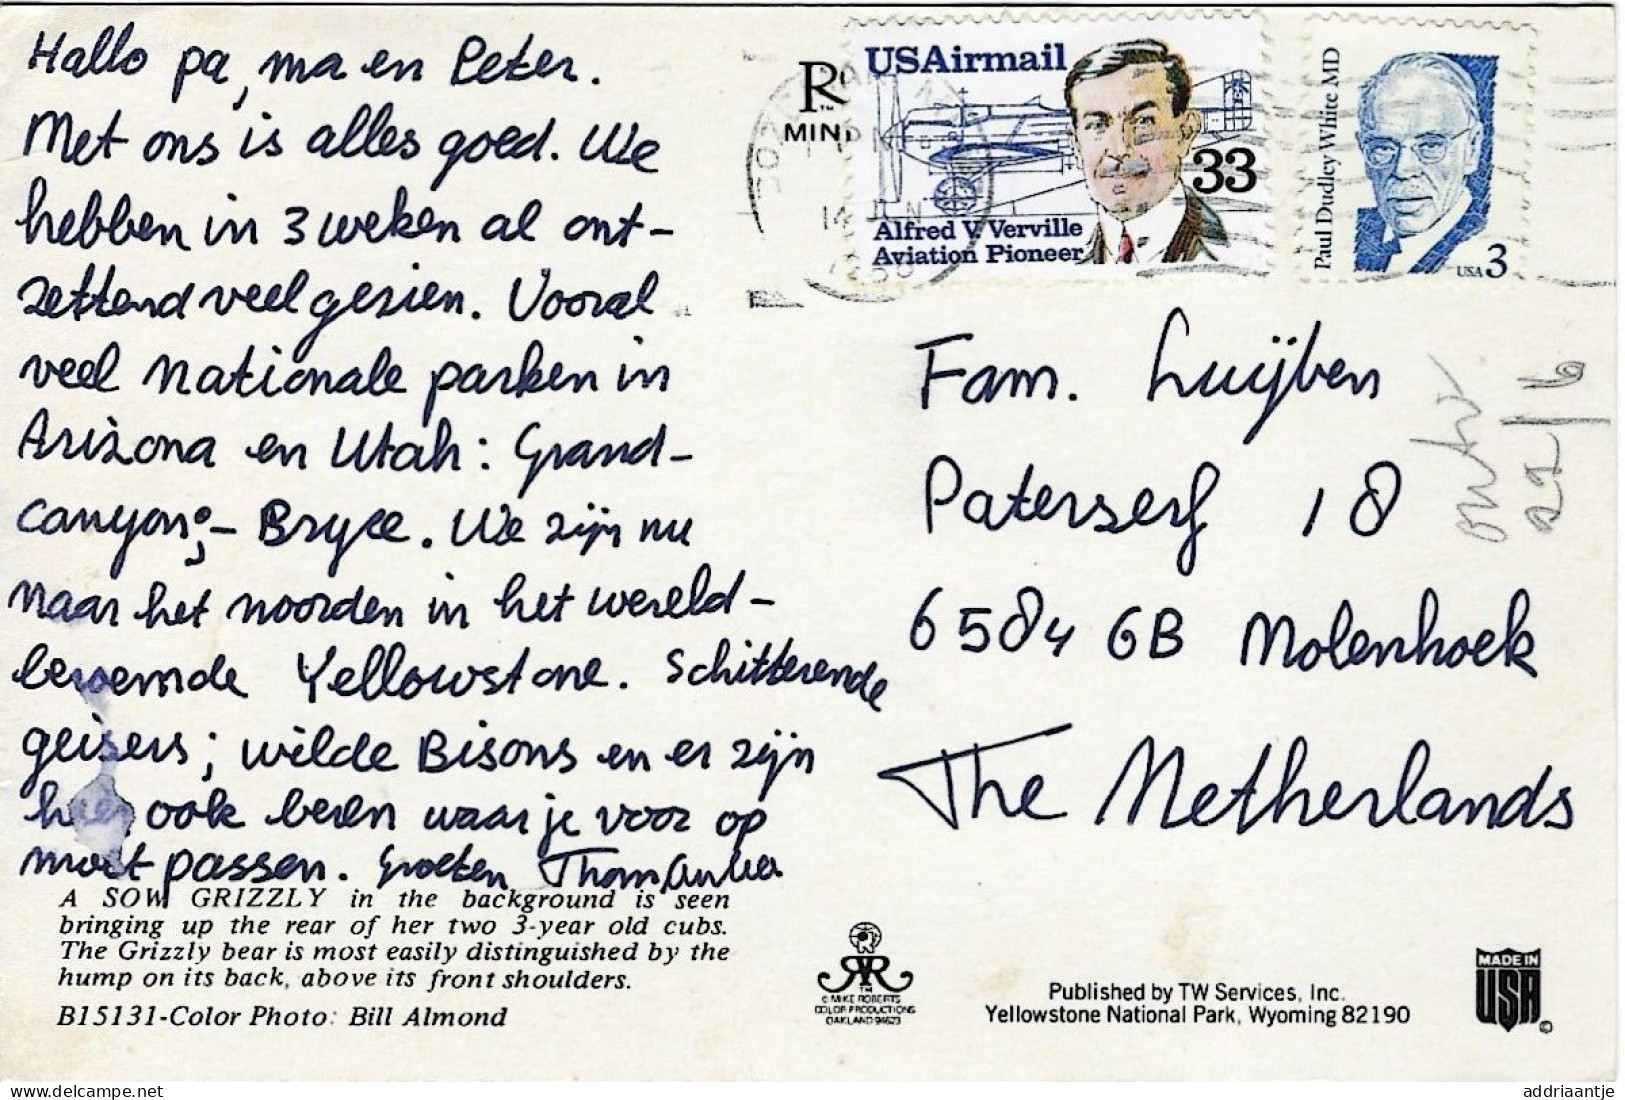 Hallo pa, ma en Peter.
Met ons is alles goed. We
hebben in 3 weken al ont-
zettend veel gezien. Vooral
veel nationale parken in
Arizona en Utah: Grand-
canyon;- Bryce. We zijn nu
naar het noorden in het wereld-
beroemde Yellowstone. Schitterende
geisers; wilde Bisons en er zijn
hier ook beren waar je voor op
moet passen. Groeten Thom
A SOW GRIZZLY in the background is seen
bringing up the rear of her two 3-year old cubs.
The Grizzly bear is most easily distinguished by the
hump on its back, above its front shoulders.
B15131-Color Photo: Bill Almond
USAirmail
33
Alfred V. Verville
Aviation Pioneer
Paul Dudley White MD
USA 3
MIN
Fam. Luijben
Paterserf 18
6584 GB Molenhoek
The Netherlands
ontv
22/6
TM
© MIKE ROBERTS
COLOR PRODUCTIONS
OAKLAND 94623
Published by TW Services, Inc.
Yellowstone National Park, Wyoming 82190
MADE IN
USA
©
delcampe.net
addriaantje